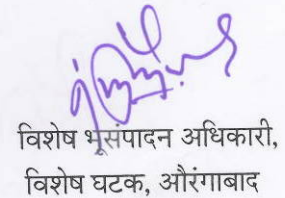 विशेष भूसंपादन अधिकारी,
विशेष घटक, औरंगाबाद